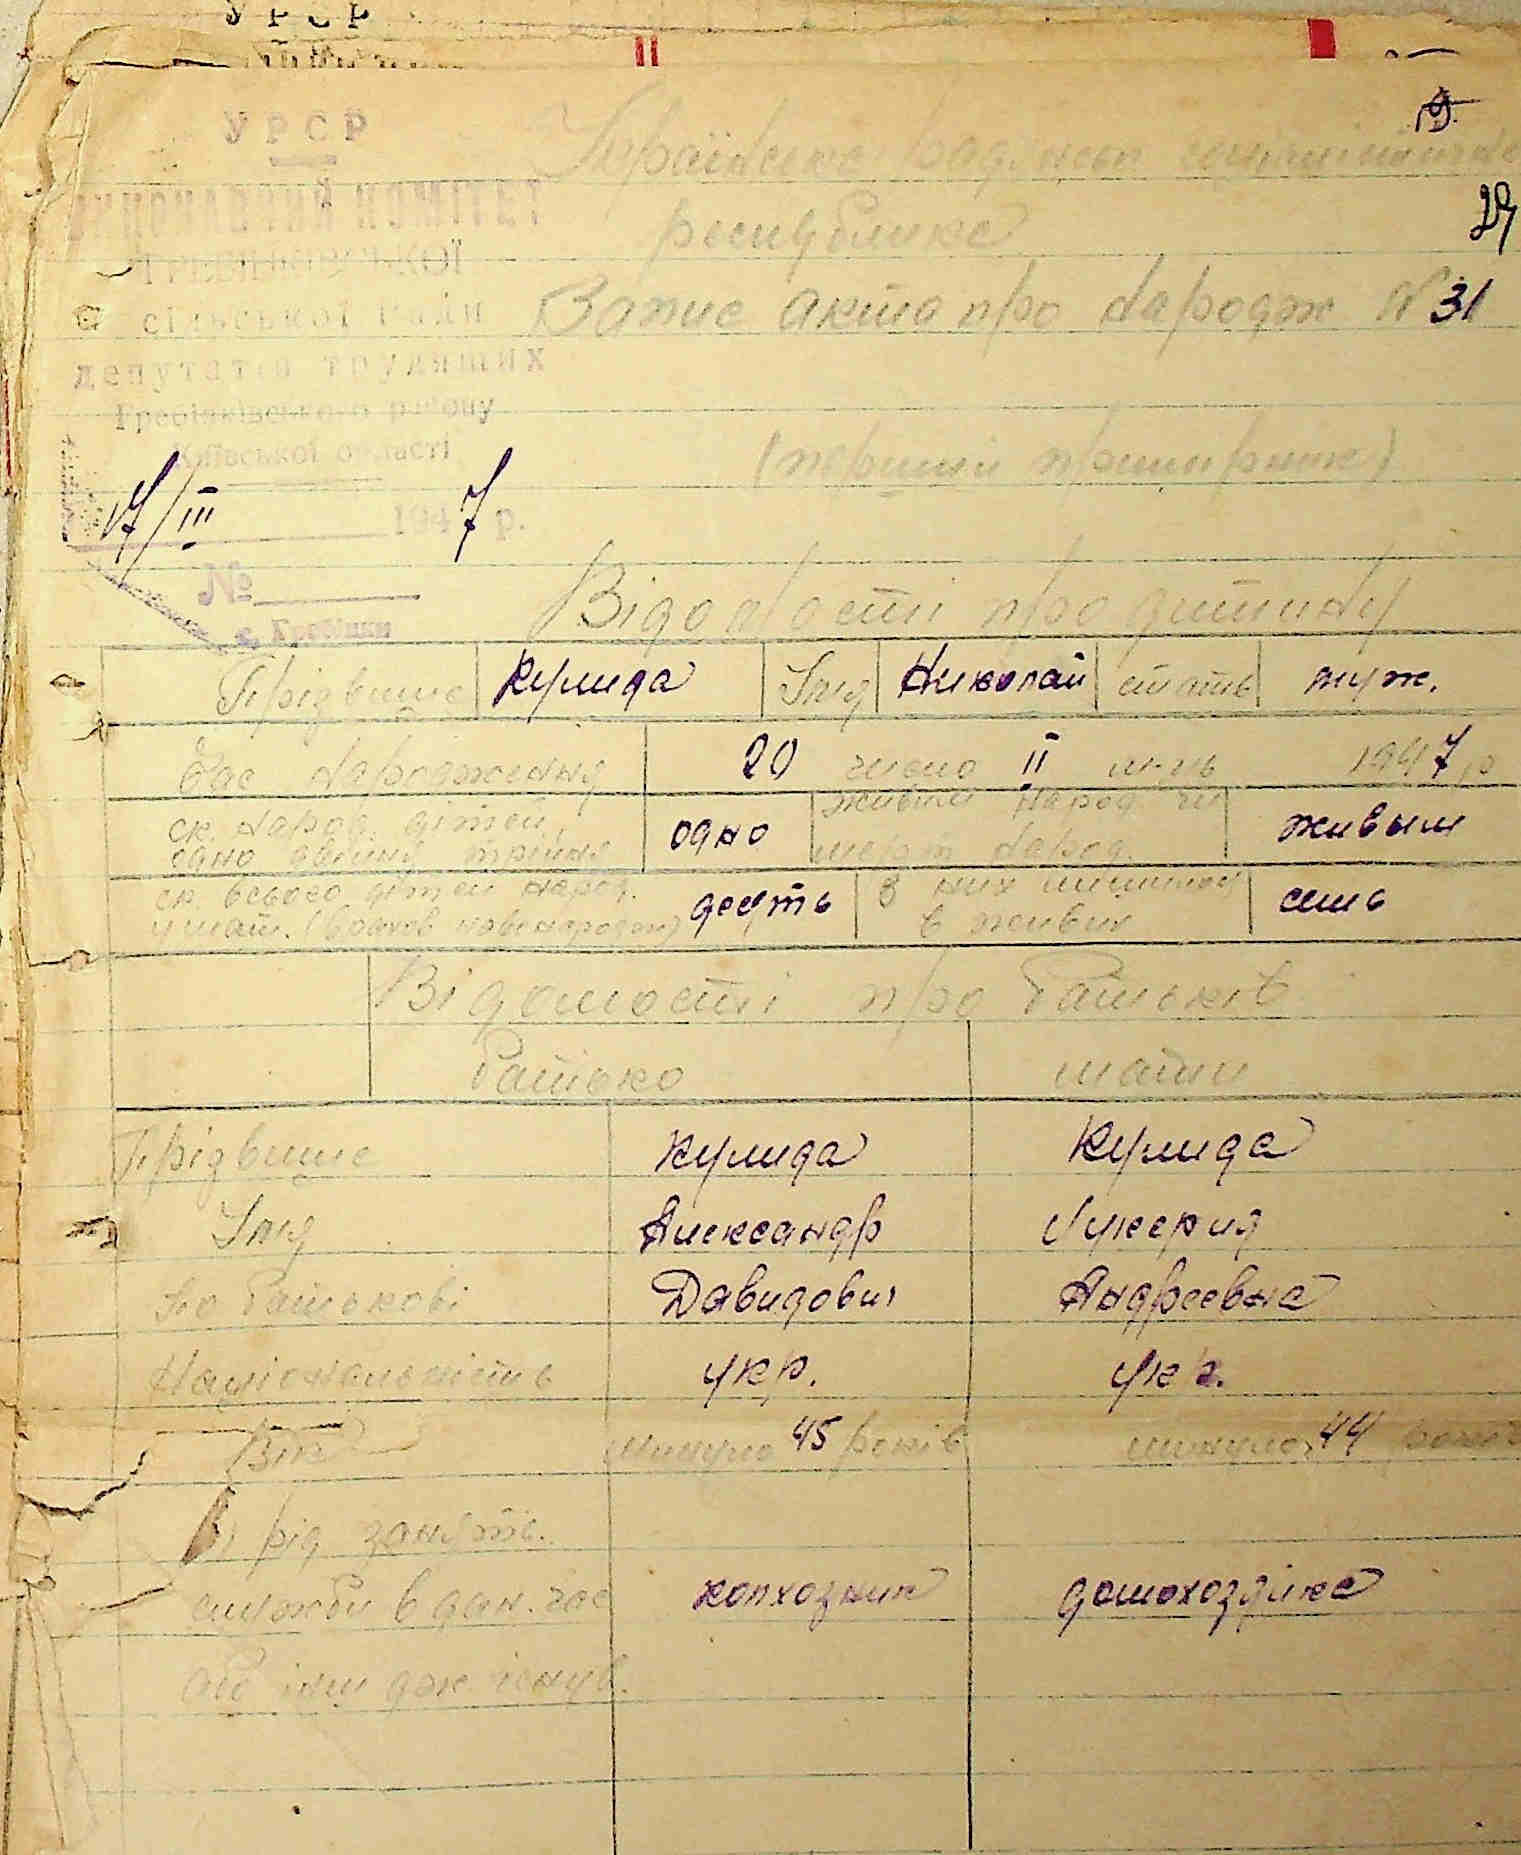 УРСР
УРСР
ВИКОНАВЧИЙ КОМІТЕТ
сільської ради
депутатів трудящих
Гребінківського району
Київської області
17/III 1947 р.
№
с. Гребінки
29
Українська радянськ соціалістична
республика
Запис акта про народж № 31
(перший примирник)
Відомості про дитину
Прізвище Кулида Імя Николай стать муж.
Час народження 20 число II м-ць 1947 р
ск. народ. дітей, одно двійня, трійня одно живым народ. чи мерт. народ. живым
ск. всього дітей народ. у мат. десять з них лишилось в живих семь
Відомості про батьків
батько мати
Прізвище Кулида Кулида
Імя Александр Лукерия
По батькові Давидович Андреевна
Національність укр. укр.
Вік минуло 45 років минуло 44 років
рід занять.
служби в дан. час колхозник домохозяйка
або інш дж. існув.